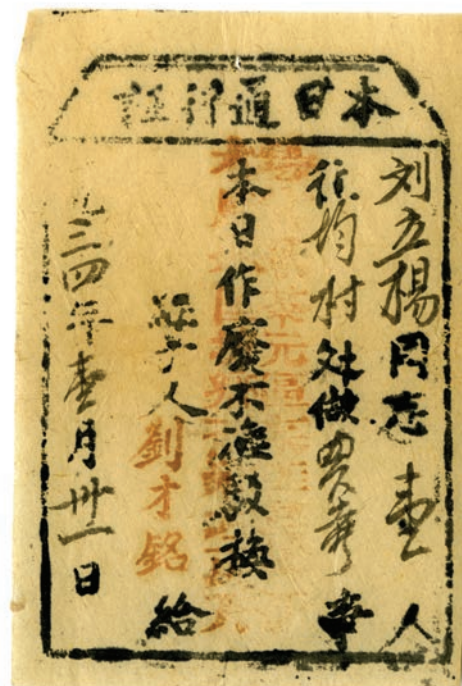 本日通行証
刘立楊同志壹人
往均村处做買賣事
本日作廢不准换
經手人劉才銘給
一九三四年壹月卅一日